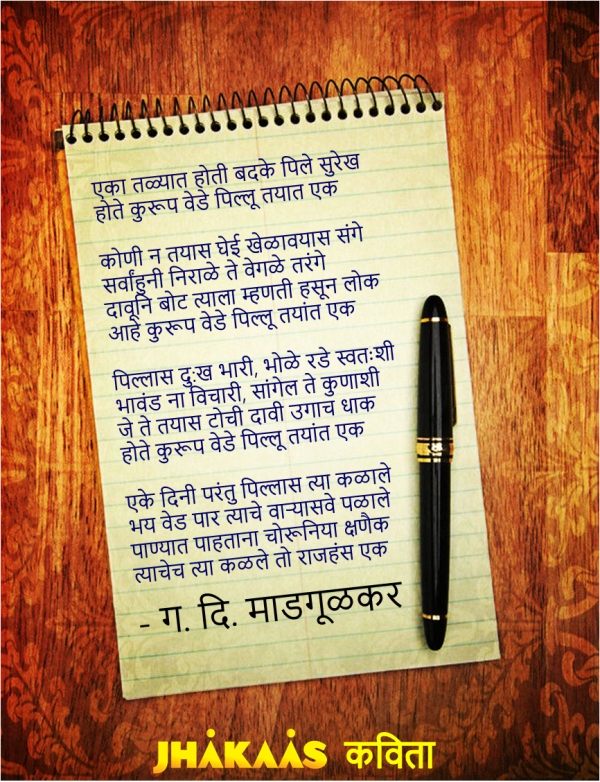 एका तळ्यात होती बदके पिले सुरेख
होते कुरूप वेडे पिल्लू तयात एक
कोणी न तयास घेई खेळावयास संगे
सर्वांहुनी निराळे ते वेगळे तरंगे
दावूनि बोट त्याला म्हणती हसून लोक
आहे कुरूप वेडे पिल्लू तयांत एक
पिल्लास दुःख भारी, भोळे रडे स्वतःशी
भावंड ना विचारी, सांगेल ते कुणाशी
जे ते तयास टोची दावी उगाच धाक
होते कुरूप वेडे पिल्लू तयांत एक
एके दिनी परंतु पिल्लास त्या कळाले
भय वेड पार त्याचे वाऱ्यासवे पळाले
पाण्यात पाहताना चोरूनिया क्षणैक
त्याचेच त्या कळले तो राजहंस एक
- ग. दि. माडगूळकर
JHAKAAS कविता